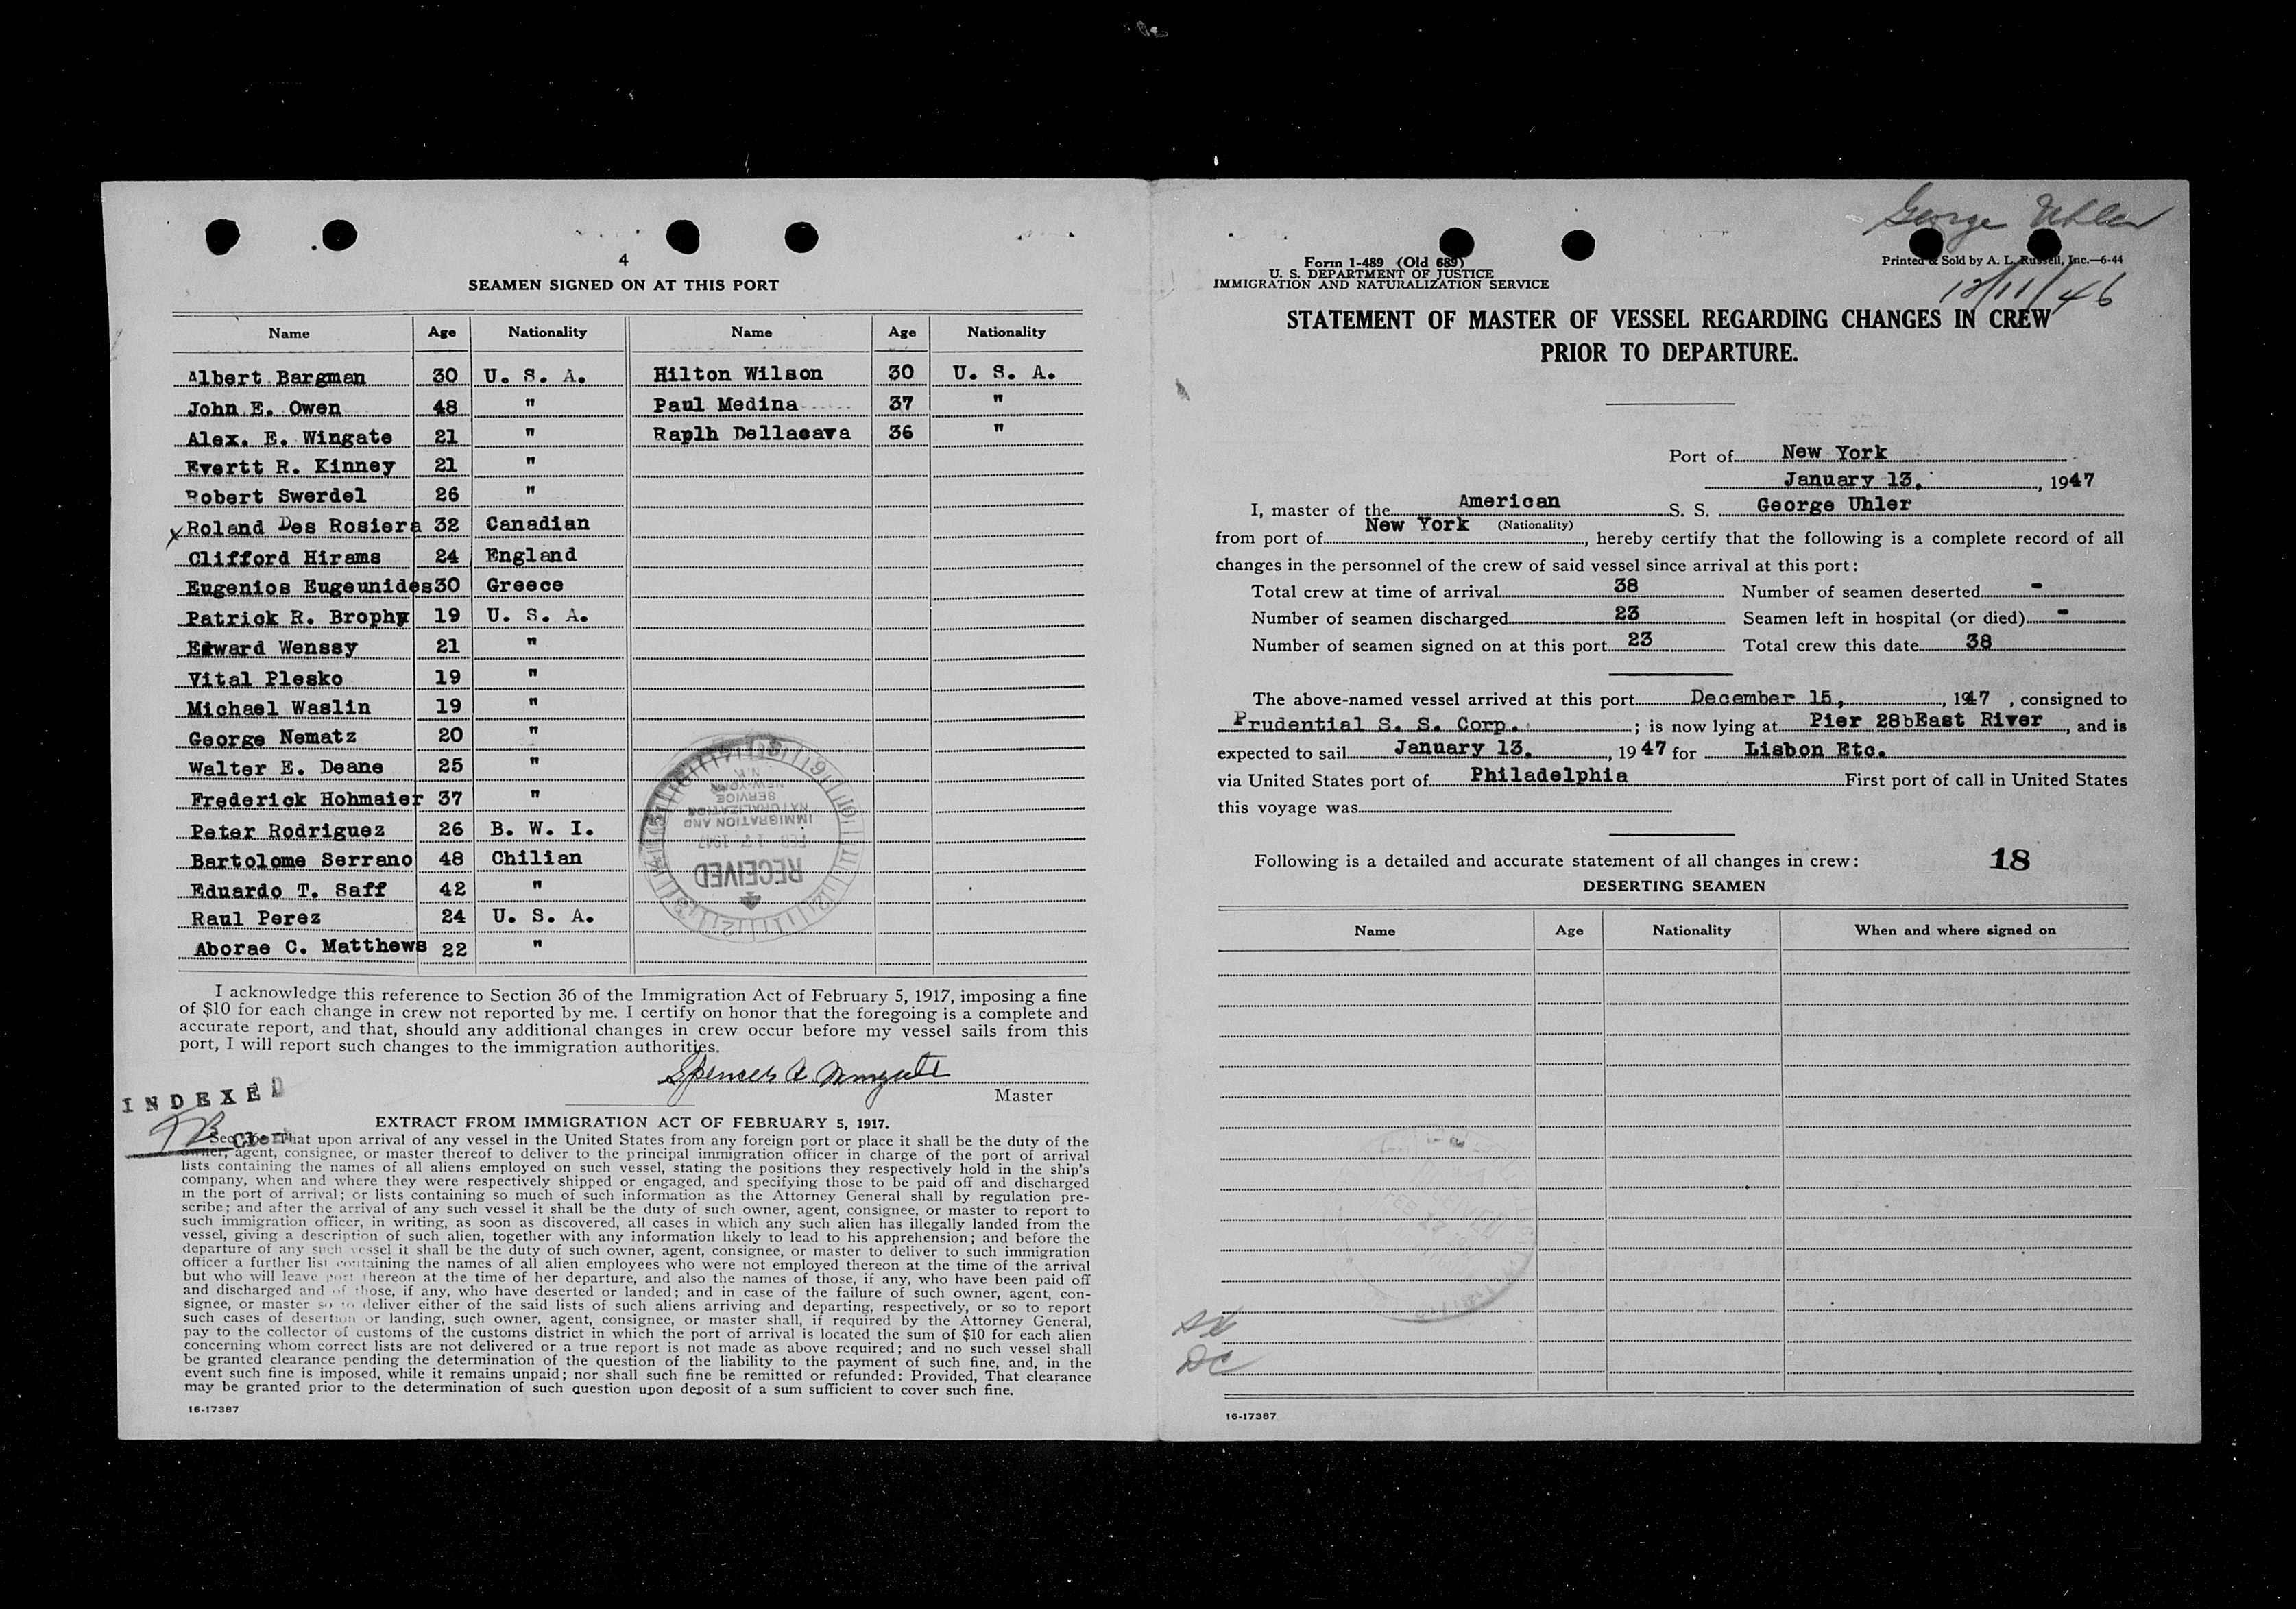 4
SEAMEN SIGNED ON AT THIS PORT
Name Age Nationality Name Age Nationality
Albert Bargman 30 U. S. A. Hilton Wilson 30 U. S. A.
John E. Owen 48 " Paul Medina 37 "
Alex. E. Wingate 21 " Raplh Dellacava 36 "
Evertt R. Kinney 21 "
Robert Swerdel 26 "
x Roland Des Rosiera 32 Canadian
Clifford Hirams 24 England
Eugenios Eugeunides 30 Greece
Patrick R. Brophy 19 U. S. A.
Edward Wenssy 21 "
Vital Plesko 19 "
Michael Waslin 19 "
George Nematz 20 "
Walter E. Deane 25 "
Frederick Hohmaier 37 "
Peter Rodriguez 26 B. W. I.
Bartolome Serrano 48 Chilian
Eduardo T. Saff 42 "
Raul Perez 24 U. S. A.
Aborae C. Matthews 22 "
RECEIVED
FEB 1947
IMMIGRATION AND
NATURALIZATION
SERVICE
NEW YORK
N.Y.
I acknowledge this reference to Section 36 of the Immigration Act of February 5, 1917, imposing a fine
of $10 for each change in crew not reported by me. I certify on honor that the foregoing is a complete and
accurate report, and that, should any additional changes in crew occur before my vessel sails from this
port, I will report such changes to the immigration authorities.
Spencer A. Wingate
Master
INDEXED
EXTRACT FROM IMMIGRATION ACT OF FEBRUARY 5, 1917.
Sec. That upon arrival of any vessel in the United States from any foreign port or place it shall be the duty of the
owner, agent, consignee, or master thereof to deliver to the principal immigration officer in charge of the port of arrival
lists containing the names of all aliens employed on such vessel, stating the positions they respectively hold in the ship's
company, when and where they were respectively shipped or engaged, and specifying those to be paid off and discharged
in the port of arrival; or lists containing so much of such information as the Attorney General shall by regulation pre-
scribe; and after the arrival of any such vessel it shall be the duty of such owner, agent, consignee, or master to report to
such immigration officer, in writing, as soon as discovered, all cases in which any such alien has illegally landed from the
vessel, giving a description of such alien, together with any information likely to lead to his apprehension; and before the
departure of any such vessel it shall be the duty of such owner, agent, consignee, or master to deliver to such immigration
officer a further list containing the names of all alien employees who were not employed thereon at the time of the arrival
but who will leave port thereon at the time of her departure, and also the names of those, if any, who have been paid off
and discharged and of those, if any, who have deserted or landed; and in case of the failure of such owner, agent, con-
signee, or master so to deliver either of the said lists of such aliens arriving and departing, respectively, or so to report
such cases of desertion or landing, such owner, agent, consignee, or master shall, if required by the Attorney General,
pay to the collector of customs of the customs district in which the port of arrival is located the sum of $10 for each alien
concerning whom correct lists are not delivered or a true report is not made as above required; and no such vessel shall
be granted clearance pending the determination of the question of the liability to the payment of such fine, and, in the
event such fine is imposed, while it remains unpaid; nor shall such fine be remitted or refunded: Provided, That clearance
may be granted prior to the determination of such question upon deposit of a sum sufficient to cover such fine.
16-17387
George Uhler
Form 1-489 (Old 689)
U. S. DEPARTMENT OF JUSTICE
IMMIGRATION AND NATURALIZATION SERVICE
Printed & Sold by A. L. Russell, Inc.—6-44
12/11/46
STATEMENT OF MASTER OF VESSEL REGARDING CHANGES IN CREW
PRIOR TO DEPARTURE.
Port of New York
January 13, , 1947
I, master of the American S. S. George Uhler
(Nationality)
from port of New York, hereby certify that the following is a complete record of all
changes in the personnel of the crew of said vessel since arrival at this port:
Total crew at time of arrival 38 Number of seamen deserted -
Number of seamen discharged 23 Seamen left in hospital (or died) -
Number of seamen signed on at this port 23 Total crew this date 38
The above-named vessel arrived at this port December 15, , 1947 , consigned to
Prudential S. S. Corp. ; is now lying at Pier 28bEast River , and is
expected to sail January 13, , 1947 for Lisbon Etc.
via United States port of Philadelphia First port of call in United States
this voyage was
Following is a detailed and accurate statement of all changes in crew: 18
DESERTING SEAMEN
Name Age Nationality When and where signed on
RECEIVED
FEB
DC
16-17387